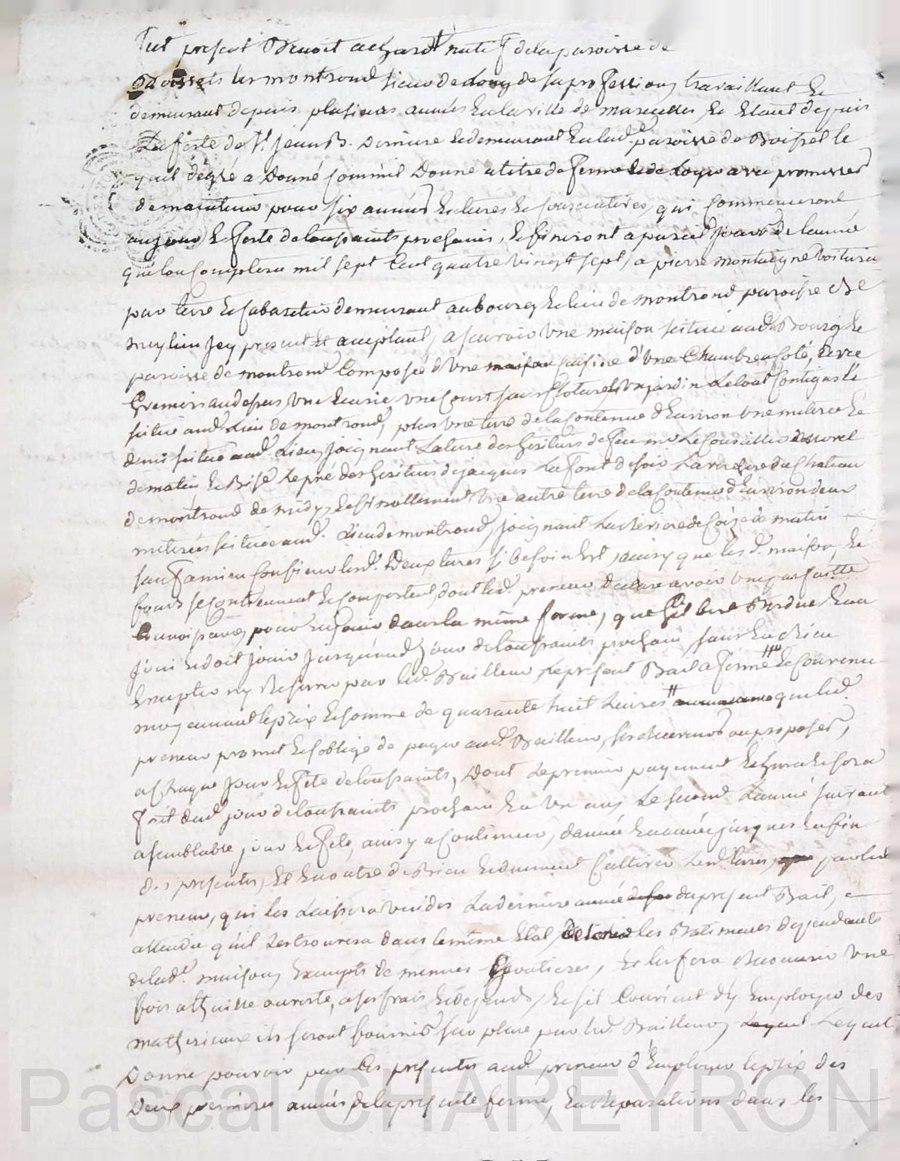 fut present Benoit achard natif de la paroisse de
Boisset les montrond, scieur de long de sa profession travaillant et
demeurant depuis plusieurs années en la ville de marseilles et Etant depuis
La feste de St. Jean B. Derniere et demeurant en lad. paroisse de Boisset le
quel de gré a Donné comme il Donne a titre de ferme et de Loyer avec promesse
de maintenir pour six années entieres et consecutives qui commenceront
au jour et feste de toussaints prochains, et finiront a pareil jour de l'année
que lon comptera mil sept Cent quatre vingt sept, a pierre montagne voiturier
par terre et cabaretier demeurant au bourg et lieu de montrond paroisse de
meylieu Icy present et acceptant, a scavoir une maison scituée aud. Bourg et
paroisse de montrond Composée d'une cuisine d'une Chambre a coté,
greniers au dessus une Ecurie une Court sans cloture et un jardin Le tout Contigus et
scitué aud. Lieu de montrond, plus une terre de la Contenue d'Environ une meterée et
demie scituée aud. Lieu, joignant La terre des heritiers de feu
de matin et Bise, le pré des heritiers de jacques La font de soir La riviere du Chateau
de montrond de midy, et finallement une autre terre de la Contenue d'Environ deux
meterées scituée aud. Lieu de montrond, joignant La riviere de Loize de matin
sauf a mieux Confiner lesd. Deux terres si Besoin Est, ainsy que lesd. maison, et
fonds se contiennent et comportent, dont led. preneur declare avoir une parfaitte
Connoissance, pour En jouir dans la même forme, que led. Bailleur En a
joui et doit jouir jusquaud. jour de toussaints prochain sans En rien
Excepter ny Reserver par led. Bailleur, le present Bail a ferme et Convenu
moyennant le prix et somme de quarante huit Livres que led.
preneur promet et s'oblige de payer aud. Bailleur,
a chaque jour et fête de toussaints, Dont Le premier payement Echerra et sera
fait aud. jour de toussaints prochain En un an, Le second L'année suivant
a semblable jour et fête, ainsy a Continuer, d'année En année jusques En fin
des presentes, Et En outre de Bien et dument Cultiver Lesd. terres, par led.
preneur, qui les Laissera vuides La derniere année du present Bail,
attendu qu'il Les trouvera dans le même Etat, les Batiments dependants
de lad. maison Exempts de menues Goutieres, et les fera Recouvrir une
fois a thuille ouverte, a ses frais et depends, et s'il Convient d'y Employer des
matheriaux ils seront fournis sur place par led. Bailleur, Lequel
Donne pouvoir par Les presentes aud. preneur d'Employer le prix des
Deux premieres années de la presente ferme, En Reparations dans les
Pascal CHAREYRON